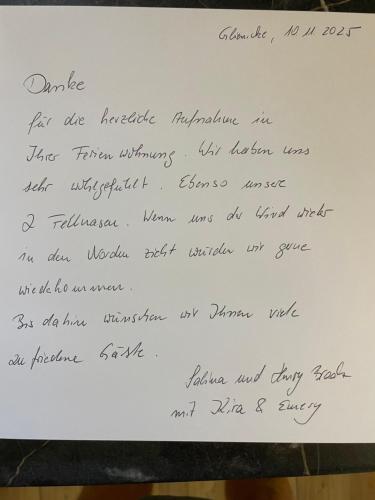 Glienicke, 10.11.2025
Danke
für die herzliche Aufnahme in
Ihrer Ferienwohnung. Wir haben uns
sehr wohlgefühlt. Ebenso unsere
2 Fellnasen. Wenn uns der Wind wieder
in den Norden zieht würden wir gerne
wiederkommen.
Bis dahin wünschen wir Ihnen viele
zufriedene Gäste.
Sabina und
mit Kira & Emery